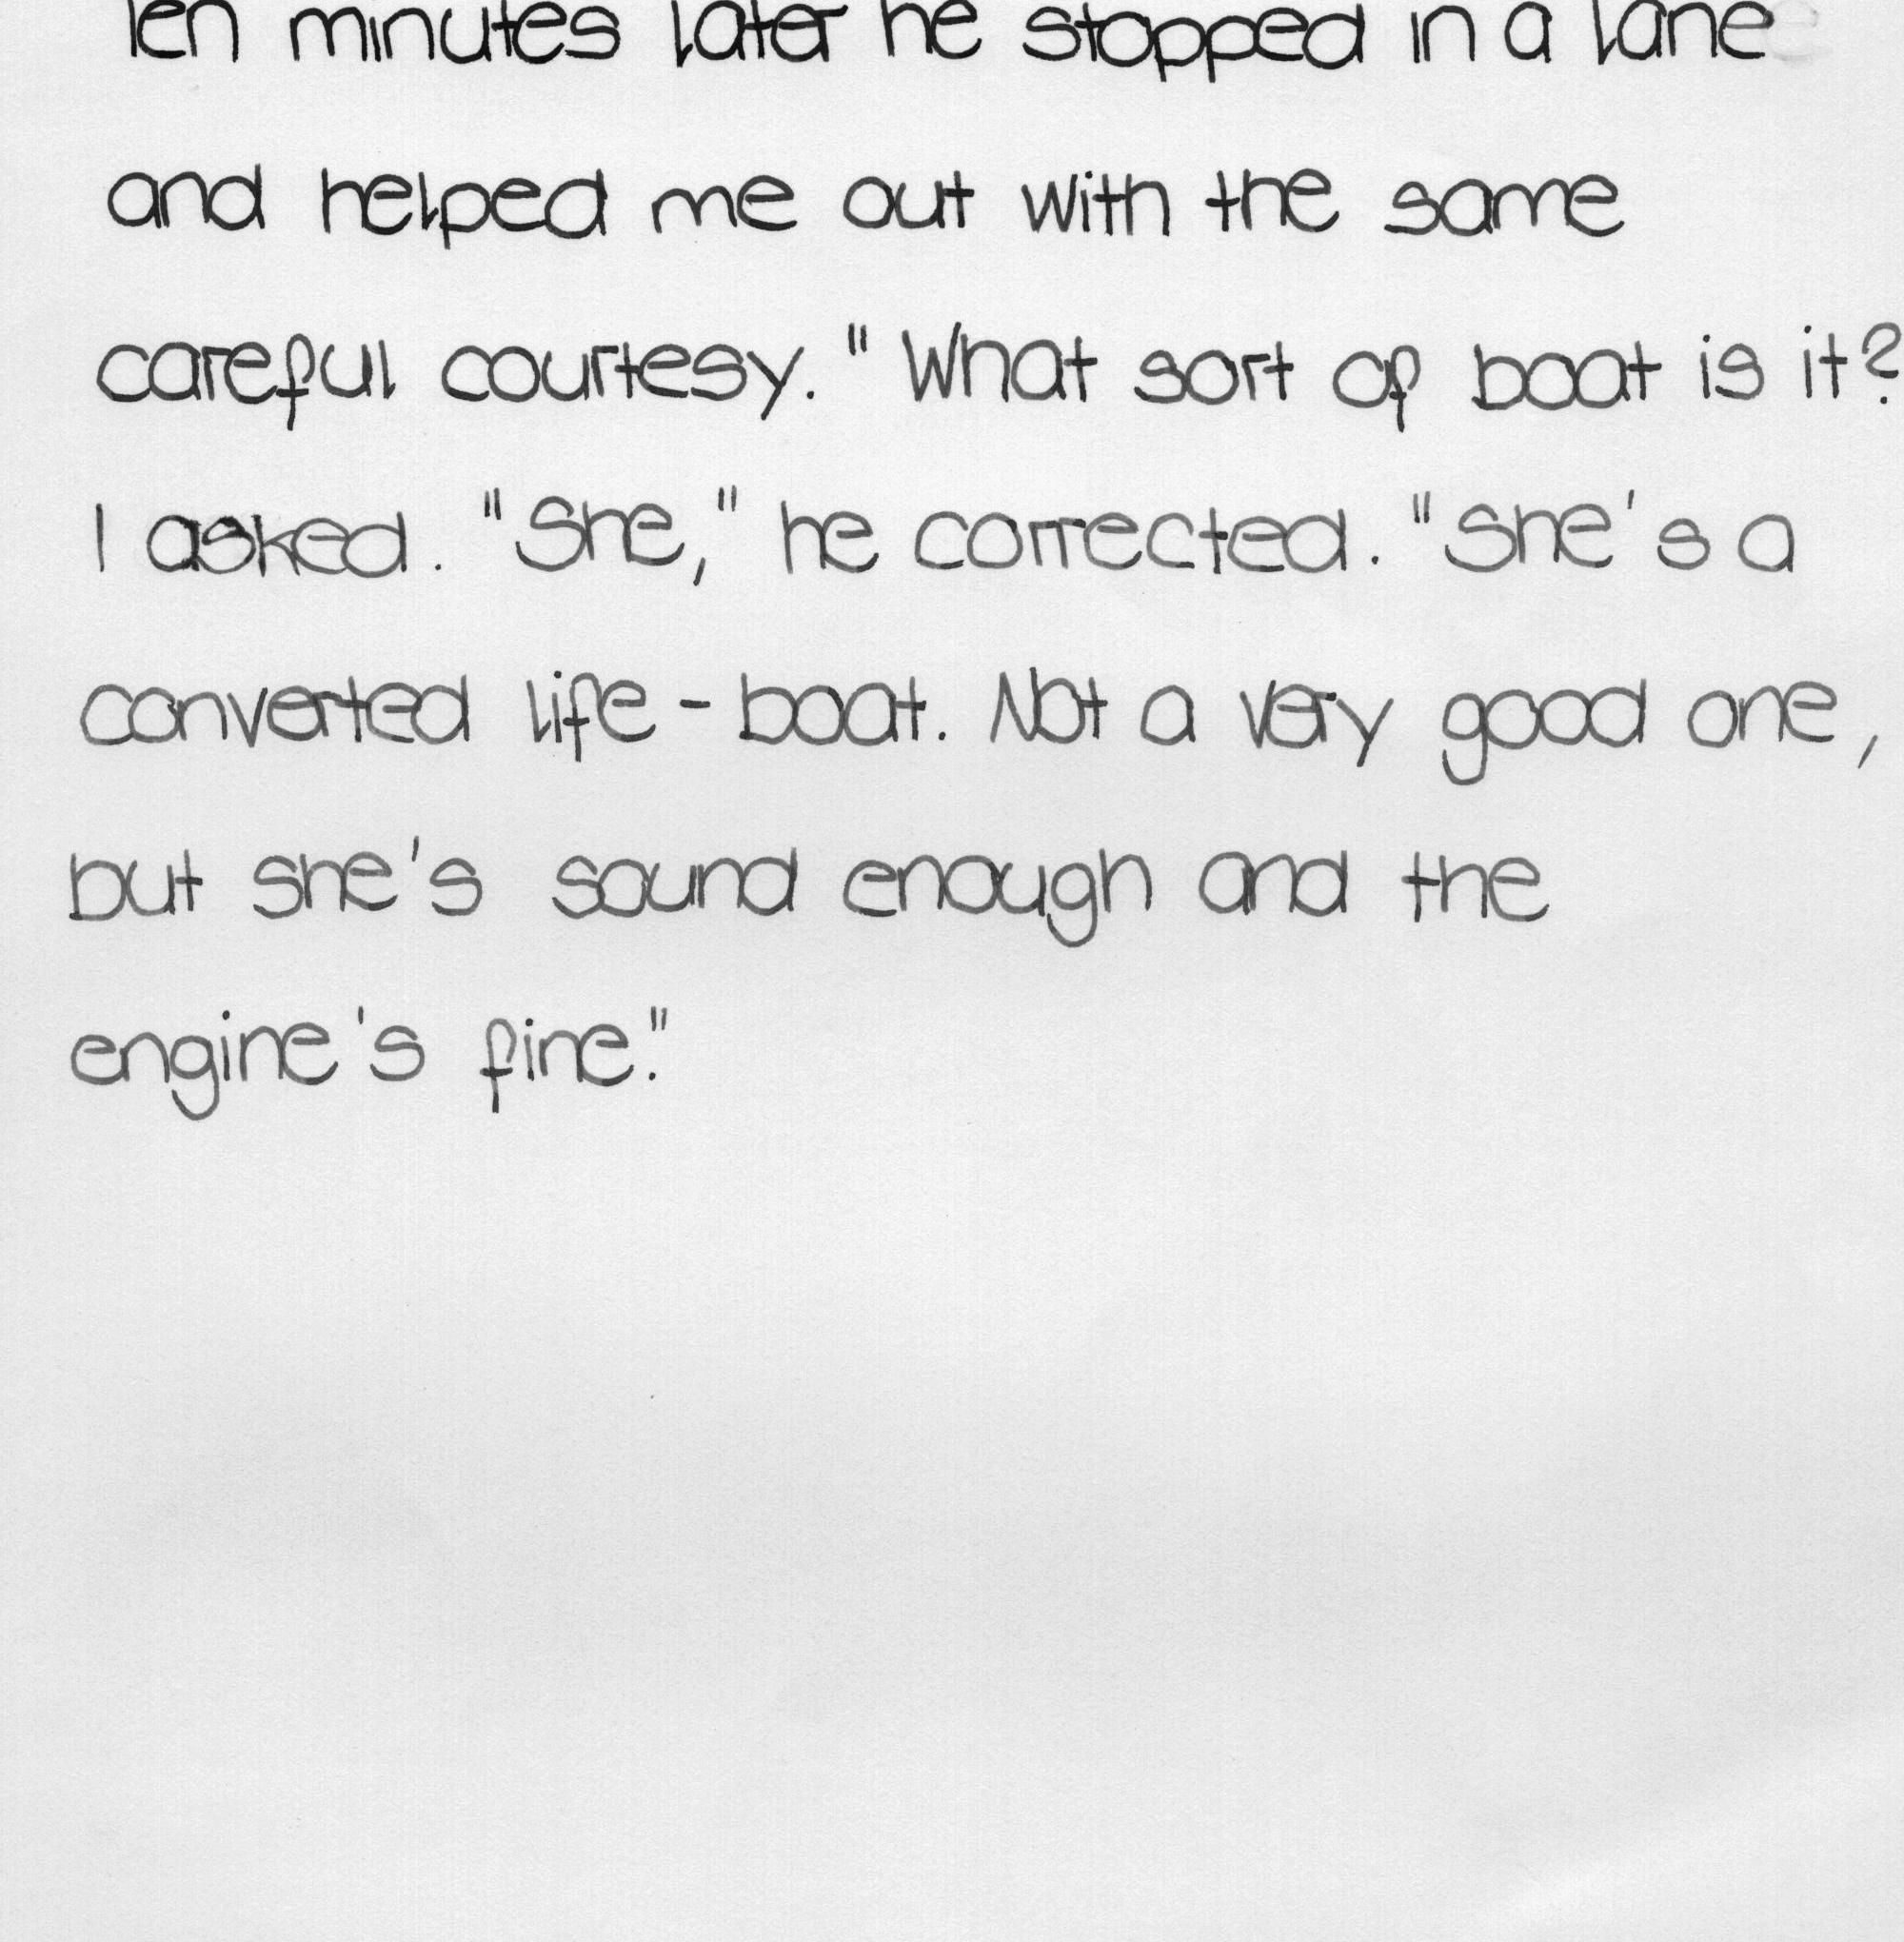 Ten minutes later he stopped in a lane
and helped me out with the same
careful courtesy. "What sort of boat is it?
I asked. "She," he corrected. "She's a
converted life-boat. Not a very good one,
but she's sound enough and the
engine's fine."